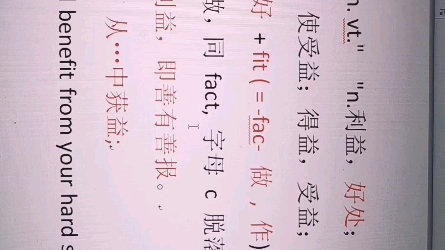 n. vt." "n.利益，好处；
使受益；得益，受益；
好 + fit ( = -fac- 做，作)
做，同 fact, 字母 c 脱落
利益，即善有善报。
从…中获益;
benefit from your hard